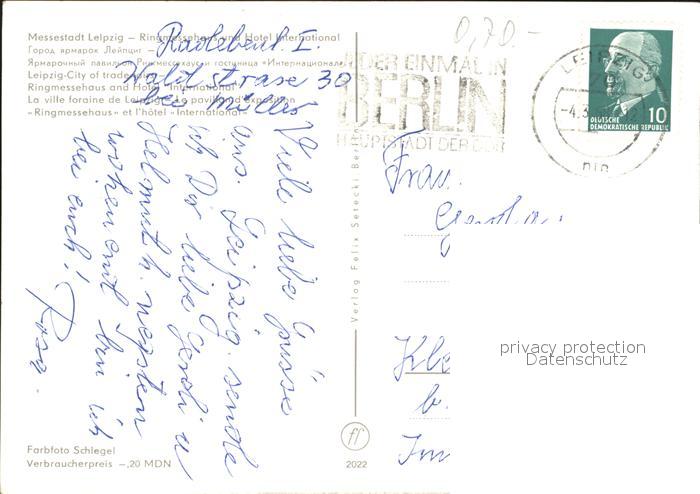 Messestadt Leipzig – Ringmessehaus und Hotel International
Город ярмарок Лейпциг –
Ярмарочный павильон «Рингмессехауз» и гостиница «Интернациональ»
Leipzig-City of trade
Ringmessehaus and Hotel "International"
La ville foraine de Leipzig – Le pavillon d'exposition
«Ringmessehaus» et l'hôtel «International»
Radebeul I.
Waldstrase 30
bei Müller
Viele liebe Grüsse
aus Leipzig sendet
ich Dir liebe Gerdi u
Helmut h. nepsten
wochenent bin ich
bei euch!
Rosa.
Farbfoto Schlegel
Verbraucherpreis –,20 MDN
Verlag Felix Setecki Berlin
2022
0,70.-
WIEDER EINMAL IN
BERLIN
HAUPTSTADT DER DDR
LEIPZIG
-4.3
10
DEUTSCHE
DEMOKRATISCHE REPUBLIK
Frau
Kle
b.
Im
privacy protection
Datenschutz